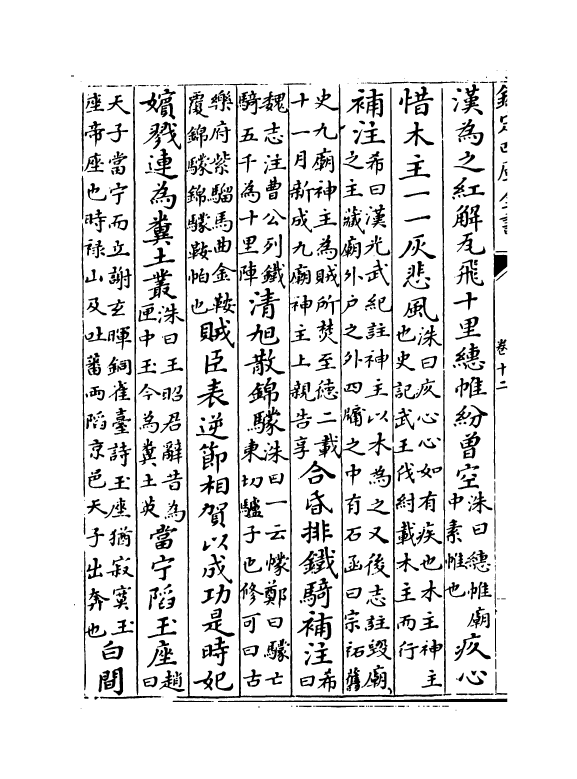 欽定四庫全書
卷十二
漢為之紅解瓦飛十里繐帷紛曾空洙曰繐帷廟中素帷也疚心
惜木主一一灰悲風洙曰疚心心如有疾也木主神主也史記武王伐紂載木主而行
補注希曰漢光武紀註神主以木為之又後志註毀廟之主藏廟外户之外四牖之中有石函曰宗祏舊
史九廟神主為賊所焚至德二載十一月新成九廟神主上親告享合昏排鐵騎補注希曰
魏志注曹公列鐵騎五千為十里陣清旭散錦䮵洙曰一云幪鄭曰䮵亡東切驢子也修可曰古
樂府紫騮馬曲金鞍覆錦䮵錦䮵鞍帕也賊臣表逆節相賀以成功是時妃
嬪戮連為糞土叢洙曰王昭君辭昔為匣中玉今為糞土英當宁陷玉座趙曰
天子當宁而立謝玄暉銅雀臺詩玉座猶寂寞玉座帝座也時禄山及吐蕃兩陷京邑天子出奔也白間